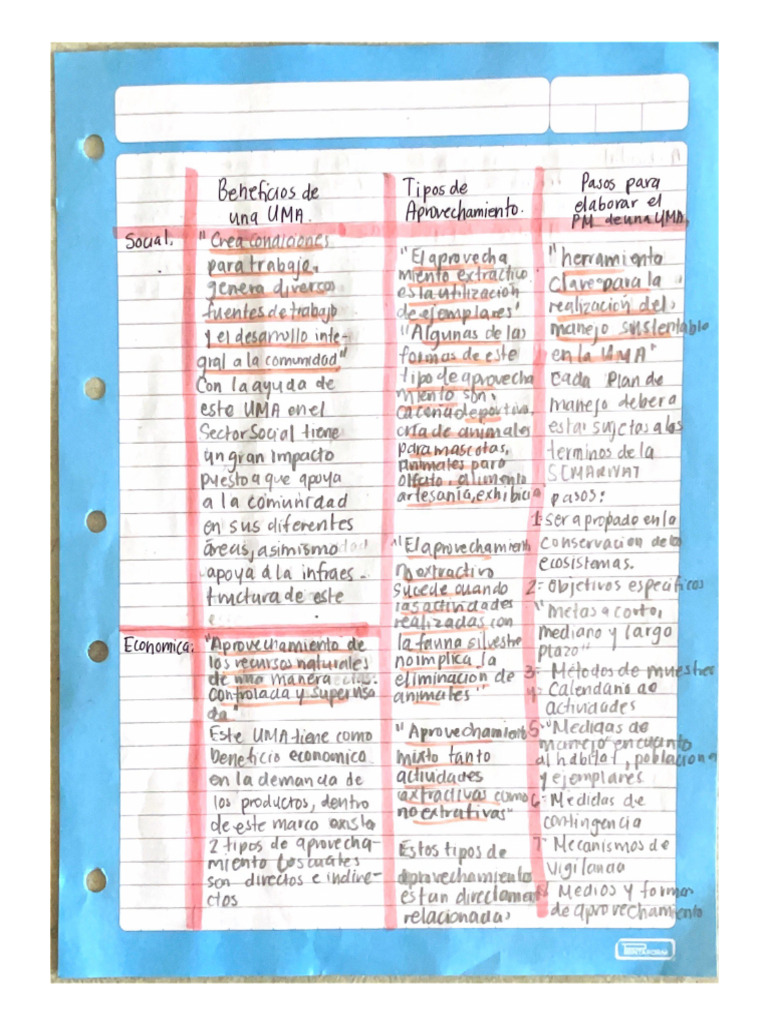 Beneficios de
una UMA.
Tipos de
Aprovechamiento.
Pasos para
elaborar el
PM de una UMA.
Social.
"Crea condiciones
para trabajo,
genera diversos
fuentes de trabajo
y el desarrollo inte-
gral a la comunidad"
Con la ayuda de
este UMA en el
Sector Social tiene
un gran impacto
puesto a que apoya
a la comunidad
en sus diferentes
áreas, asimismo
apoya a la infraes-
tructura de este
Economica:
"Aprovechamiento de
los recursos naturales
de una manera
controlada y supervisa
da"
Este UMA tiene como
beneficio economico
en la demanda de
los productos, dentro
de este marco exista
2 tipos de aprovecha-
miento los cuales
son directos e indire-
ctos
"El aprovecha
miento extractivo
es la utilización
de ejemplares"
"Algunas de las
formas de este
tipo de aprovecha
miento son,
caceria deportiva,
cria de animales
para mascotas,
animales para
olfato, alimento
artesanía, exhibicio
"El aprovechamient
no extractivo
sucede cuando
las actividades
realizadas con
la fauna silvestre
no implica la
eliminación de
animales"
"Aprovechamient
mixto tanto
actividades
extractivas como
no extrativas"
Estos tipos de
aprovechamiento
estan directament
relacionadas
"herramiento
clave para la
realización del
manejo sustentable
en la UMA"
Cada Plan de
manejo debera
estar sujetos a los
terminos de la
SEMARNAT
pasos:
1: Ser apropado en la
conservacion de los
ecosistemas.
2: Objetivos especificos
"metas a corto,
mediano y largo
plazo"
3: Métodos de muestreo
4: Calendario de
actividades
5: "Medidas de
manejo en cuanto
al habitat, poblaciona
y ejemplares
6: Medidas de
contingencia
7: Mecanismos de
Vigilancia
8: Medios y formas
de aprovechamiento